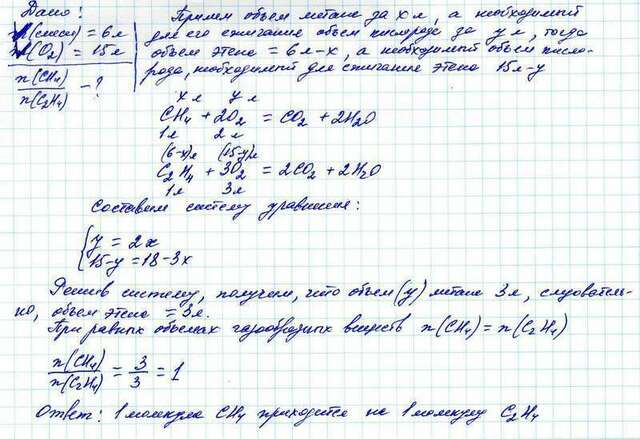 Дано:
V(смеси) = 6л
V(O₂) = 15л
n(CH₄)
n(C₂H₄) - ?
Примем объем метана за x л, а необходимый
для его сжигания объем кислорода за y л, тогда
объем этена = 6л-x, а необходимый объем кисло-
рода, необходимый для сжигания этена 15л-y
x л y л
CH₄ + 2O₂ = CO₂ + 2H₂O
1л 2л
(6-x)л (15-y)л
C₂H₄ + 3O₂ = 2CO₂ + 2H₂O
1л 3л
Составим систему уравнения:
y = 2x
15-y = 18-3x
Решив систему, получаем, что объем (y) метана 3л, следователь-
но, объем этена = 3л.
При равных объемах газообразных веществ n(CH₄) = n(C₂H₄)
n(CH₄)
n(C₂H₄) = 3/3 = 1
Ответ: 1 молекула CH₄ приходится на 1 молекулу C₂H₄